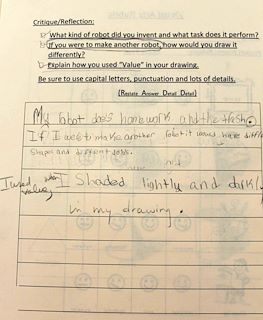 Critique/Reflection:
What kind of robot did you invent and what task does it perform?
If you were to make another robot, how would you draw it
differently?
Explain how you used "Value" in your drawing.
Be sure to use capital letters, punctuation and lots of details.
(Restate Answer Detail Detail)
My robot does homework and the trash.
If I were to make another robot it would have diff
Shapes and different jobs.
I used value when I Shaded lightly and darkly
in my drawing.